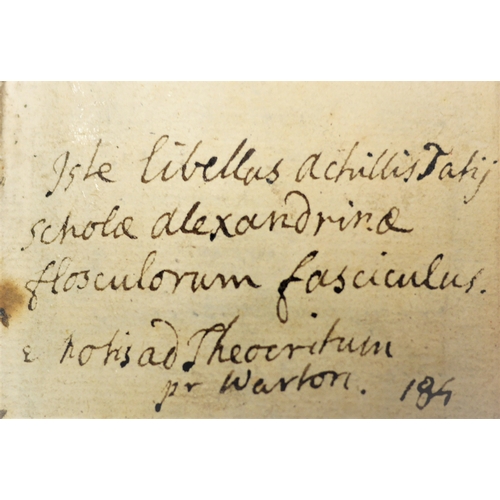 Iste libellus Achillis Tatij
scholæ alexandrinæ
flosculorum fasciculus.
e notis ad Theocritum
pr Warton.